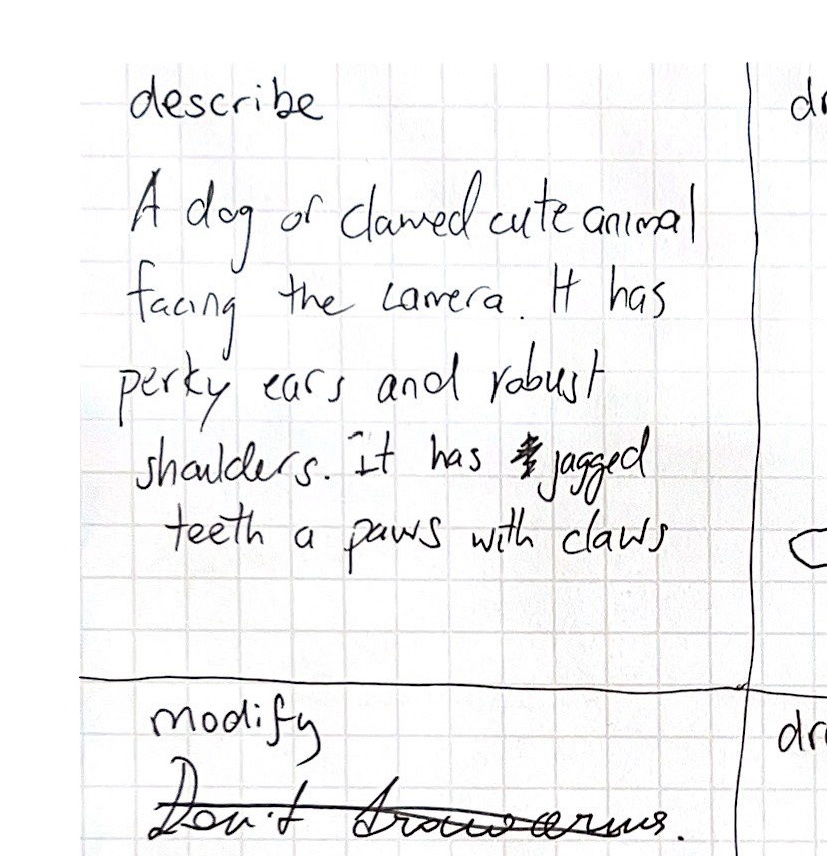 describe
dr
A dog or clawed cute animal
facing the camera. It has
perky ears and robust
shoulders. It has jagged
teeth a paws with claws
modify
dr
Don't draw arms.